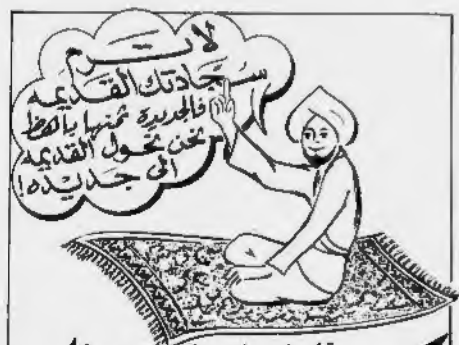 لا ترم
سجادتك القديمه
فالجديدة ثمنها باهظ
نحن نحول القديمه
الى جديده!